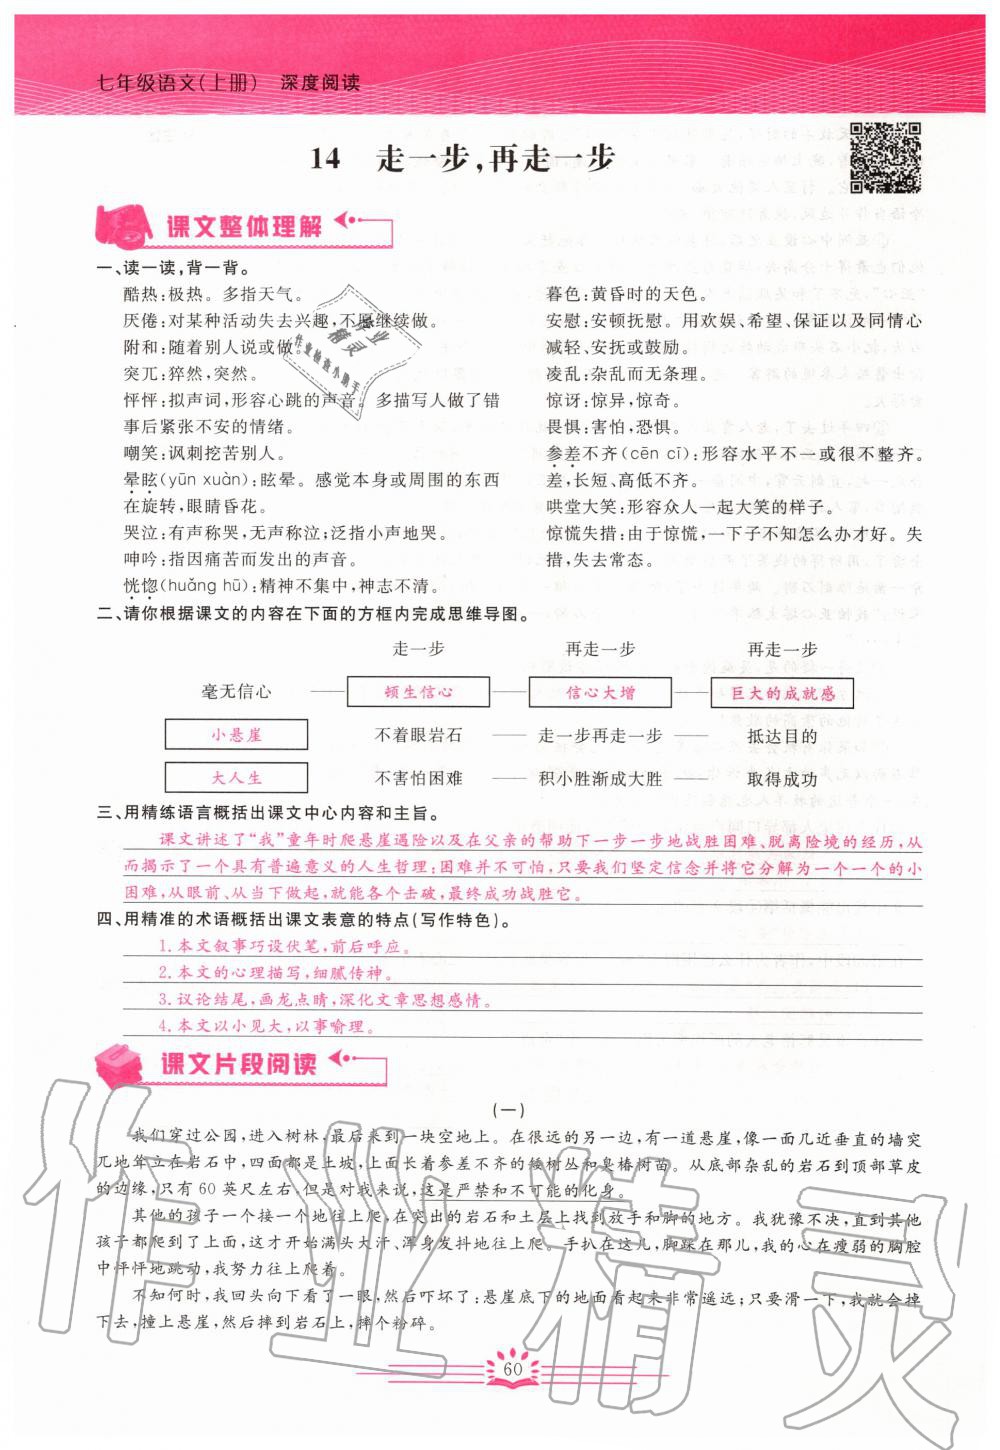 七年级语文(上册) 深度阅读
14 走一步,再走一步
课文整体理解
一、读一读,背一背。
酷热:极热。多指天气。
厌倦:对某种活动失去兴趣,不愿继续做。
附和:随着别人说或做。
突兀:猝然,突然。
怦怦:拟声词,形容心跳的声音。多描写人做了错
事后紧张不安的情绪。
嘲笑:讽刺挖苦别人。
晕眩(yūn xuàn):眩晕。感觉本身或周围的东西
在旋转,眼睛昏花。
哭泣:有声称哭,无声称泣;泛指小声地哭。
呻吟:指因痛苦而发出的声音。
恍惚(huǎng hū):精神不集中,神志不清。
暮色:黄昏时的天色。
安慰:安顿抚慰。用欢娱、希望、保证以及同情心
减轻、安抚或鼓励。
凌乱:杂乱而无条理。
惊讶:惊异,惊奇。
畏惧:害怕,恐惧。
参差不齐(cēn cī):形容水平不一或很不整齐。
差,长短、高低不齐。
哄堂大笑:形容众人一起大笑的样子。
惊慌失措:由于惊慌,一下子不知怎么办才好。失
措,失去常态。
二、请你根据课文的内容在下面的方框内完成思维导图。
走一步 再走一步 再走一步
毫无信心 顿生信心 信心大增 巨大的成就感
小悬崖 不着眼岩石 走一步再走一步 抵达目的
大人生 不害怕困难 积小胜渐成大胜 取得成功
三、用精练语言概括出课文中心内容和主旨。
课文讲述了“我”童年时爬悬崖遇险以及在父亲的帮助下一步一步地战胜困难、脱离险境的经历,从
而揭示了一个具有普遍意义的人生哲理:困难并不可怕,只要我们坚定信念并将它分解为一个一个的小
困难,从眼前、从当下做起,就能各个击破,最终成功战胜它。
四、用精准的术语概括出课文表意的特点(写作特色)。
1.本文叙事巧设伏笔,前后呼应。
2.本文的心理描写,细腻传神。
3.议论结尾,画龙点睛,深化文章思想感情。
4.本文以小见大,以事喻理。
课文片段阅读
(一)
我们穿过公园,进入树林,最后来到一块空地上。在很远的另一边,有一道悬崖,像一面几近垂直的墙突
兀地耸立在岩石中,四面都是土坡,上面长着参差不齐的矮树丛和臭椿树苗。从底部杂乱的岩石到顶部草皮
的边缘,只有 60 英尺左右,但是对我来说,这是严禁和不可能的化身。
其他的孩子一个接一个地往上爬,在突出的岩石和土层上找到放手和脚的地方。我犹豫不决,直到其他
孩子都爬到了上面,这才开始满头大汗、浑身发抖地往上爬。手扒在这儿,脚踩在那儿,我的心在瘦弱的胸腔
中怦怦地跳动,我努力往上爬着。
不知何时,我回头向下看了一眼,然后吓坏了:悬崖底下的地面看起来非常遥远;只要滑一下,我就会掉
下去,撞上悬崖,然后摔到岩石上,摔个粉碎。
60
作业精灵
作业
精灵
作业检查小助手